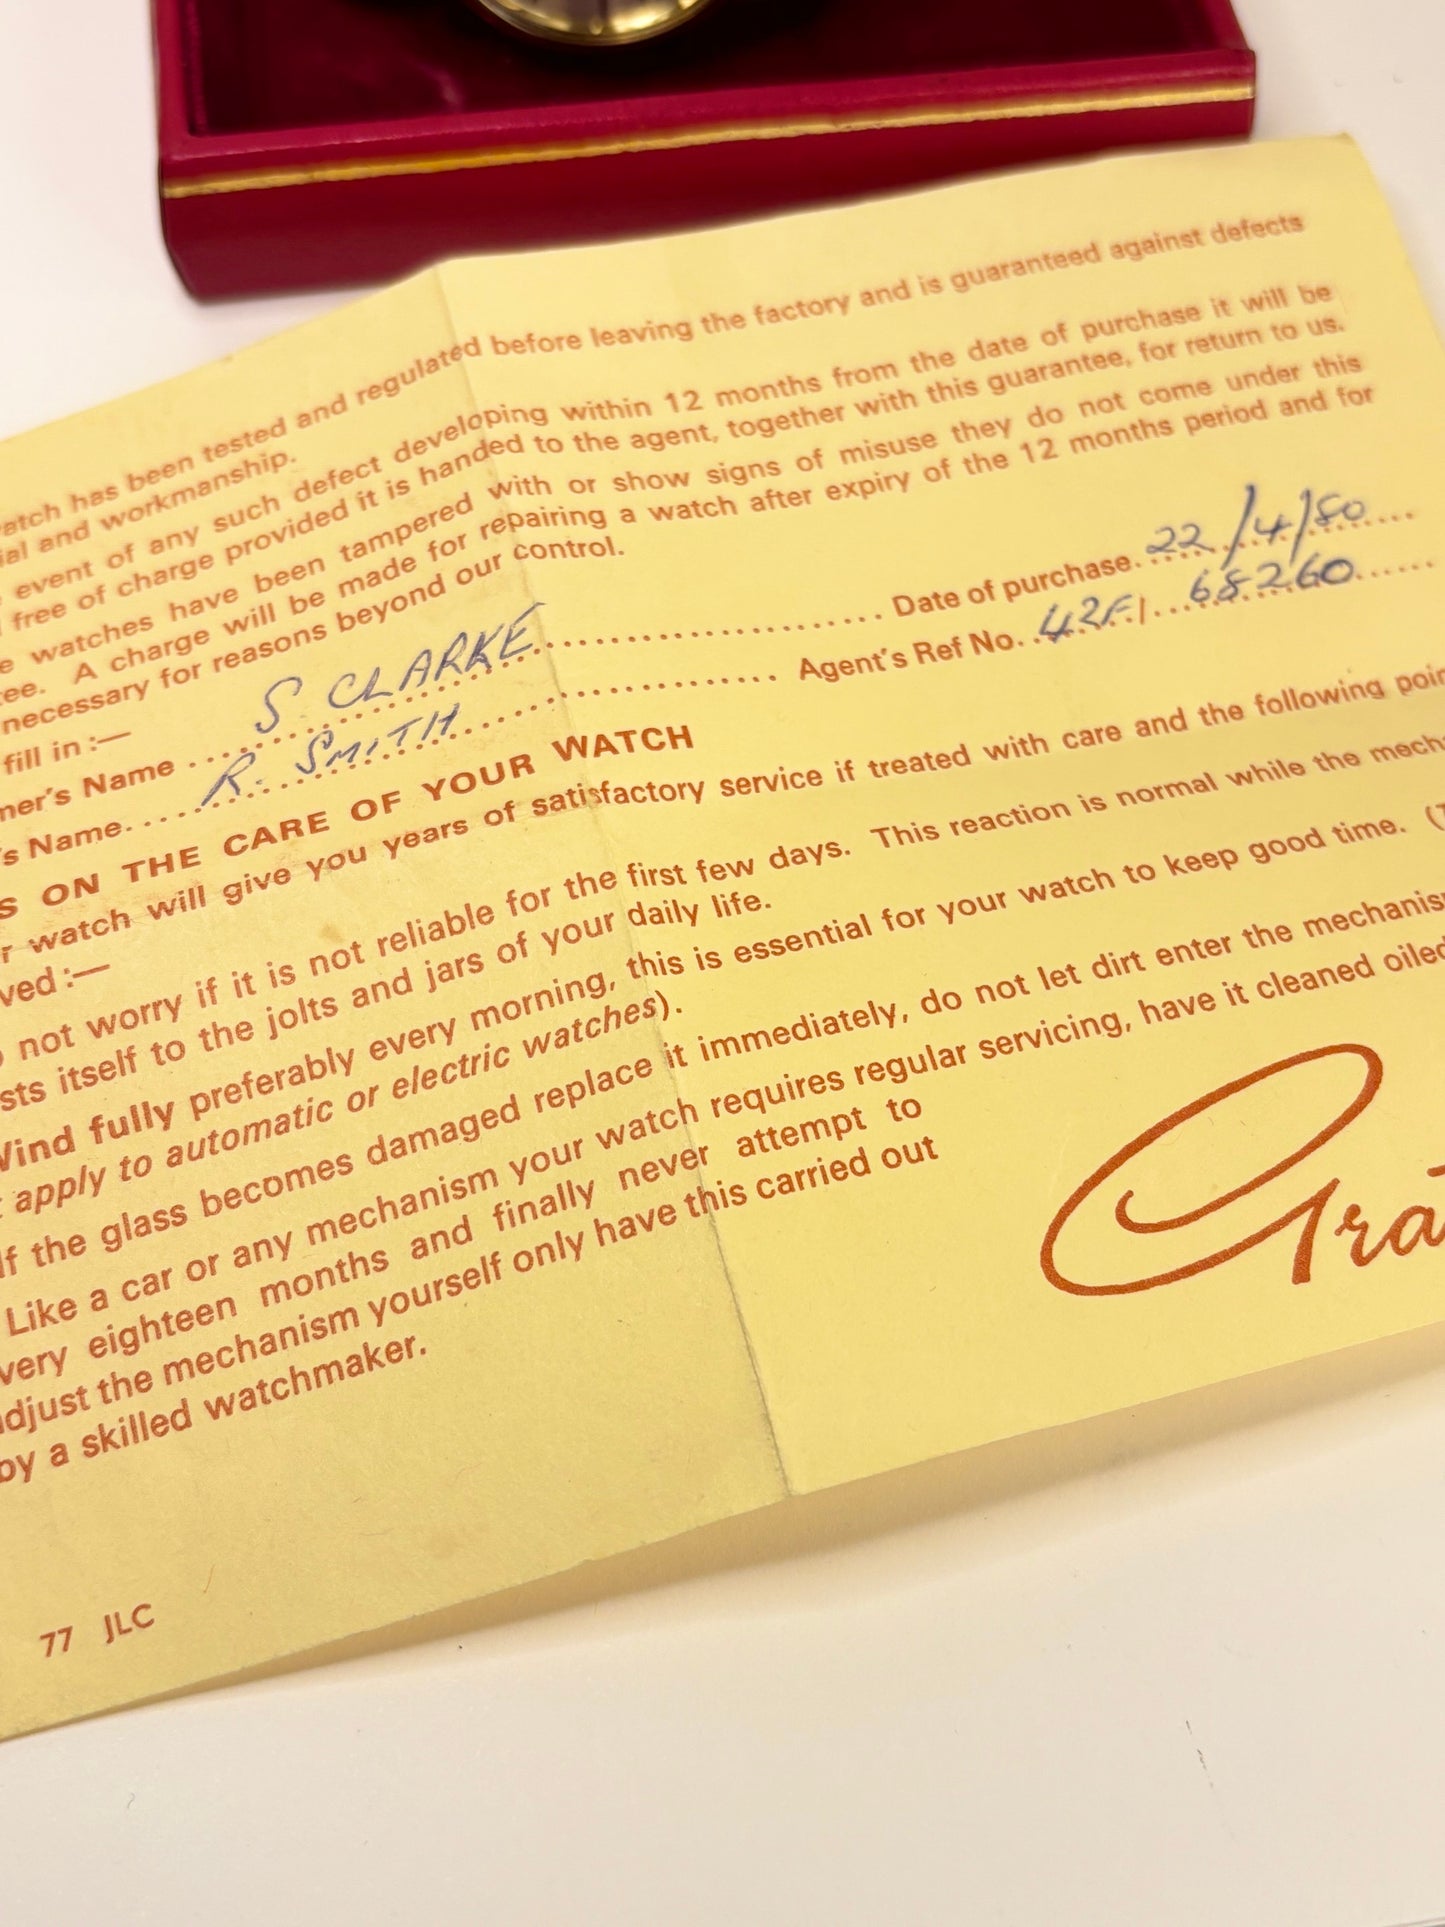 atch has been tested and regulated before leaving the factory and is guaranteed against defects
ial and workmanship.
event of any such defect developing within 12 months from the date of purchase it will be
free of charge provided it is handed to the agent, together with this guarantee, for return to us.
e watches have been tampered with or show signs of misuse they do not come under this
tee. A charge will be made for repairing a watch after expiry of the 12 months period and for
necessary for reasons beyond our control.
fill in :—
mer's Name S. CLARKE Date of purchase. 22/4/80
's Name. R. SMITH Agent's Ref No. 42F/ 68260
S ON THE CARE OF YOUR WATCH
r watch will give you years of satisfactory service if treated with care and the following poin
ved :—
not worry if it is not reliable for the first few days. This reaction is normal while the mech
sts itself to the jolts and jars of your daily life.
Wind fully preferably every morning, this is essential for your watch to keep good time. (
apply to automatic or electric watches).
If the glass becomes damaged replace it immediately, do not let dirt enter the mechanism
Like a car or any mechanism your watch requires regular servicing, have it cleaned oiled
very eighteen months and finally never attempt to
adjust the mechanism yourself only have this carried out
by a skilled watchmaker.
Gra
77 JLC